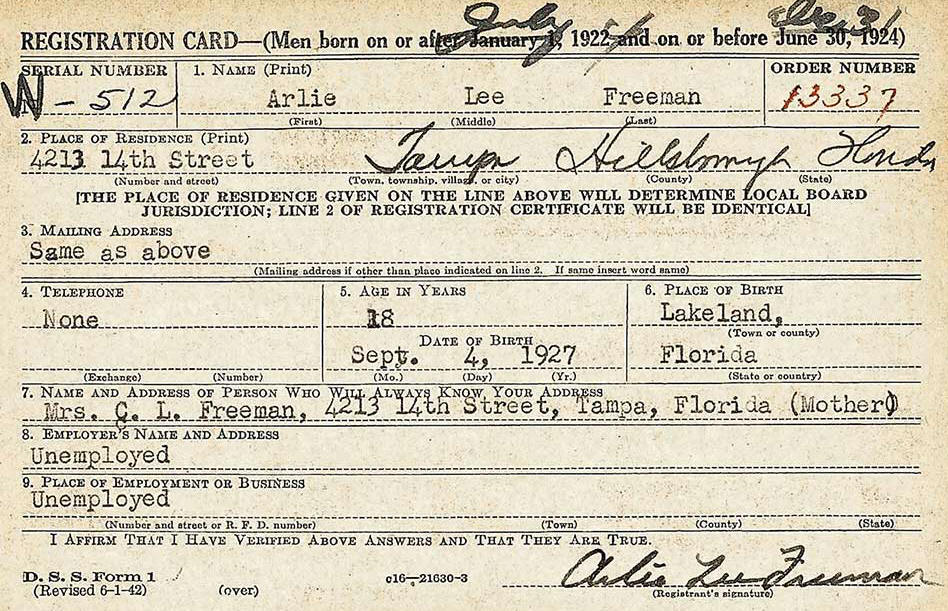 July 1 Dec 31
REGISTRATION CARD—(Men born on or after January 1, 1922 and on or before June 30, 1924)
SERIAL NUMBER 1. NAME (Print) ORDER NUMBER
W - 512 Arlie Lee Freeman 13337
(First) (Middle) (Last)
2. PLACE OF RESIDENCE (Print)
4213 14th Street Tampa Hillsborough Florida
(Number and street) (Town, township, village, or city) (County) (State)
[THE PLACE OF RESIDENCE GIVEN ON THE LINE ABOVE WILL DETERMINE LOCAL BOARD
JURISDICTION; LINE 2 OF REGISTRATION CERTIFICATE WILL BE IDENTICAL]
3. MAILING ADDRESS
Same as above
(Mailing address if other than place indicated on line 2. If same insert word same)
4. TELEPHONE 5. AGE IN YEARS 6. PLACE OF BIRTH
None 18 Lakeland,
DATE OF BIRTH (Town or county)
Sept. 4, 1927 Florida
(Exchange) (Number) (Mo.) (Day) (Yr.) (State or country)
7. NAME AND ADDRESS OF PERSON WHO WILL ALWAYS KNOW YOUR ADDRESS
Mrs. C. L. Freeman, 4213 14th Street, Tampa, Florida (Mother)
8. EMPLOYER'S NAME AND ADDRESS
Unemployed
9. PLACE OF EMPLOYMENT OR BUSINESS
Unemployed
(Number and street or R. F. D. number) (Town) (County) (State)
I AFFIRM THAT I HAVE VERIFIED ABOVE ANSWERS AND THAT THEY ARE TRUE.
D. S. S. Form 1 c16—21630-3 Arlie Lee Freeman
(Revised 6-1-42) (over) (Registrant's signature)